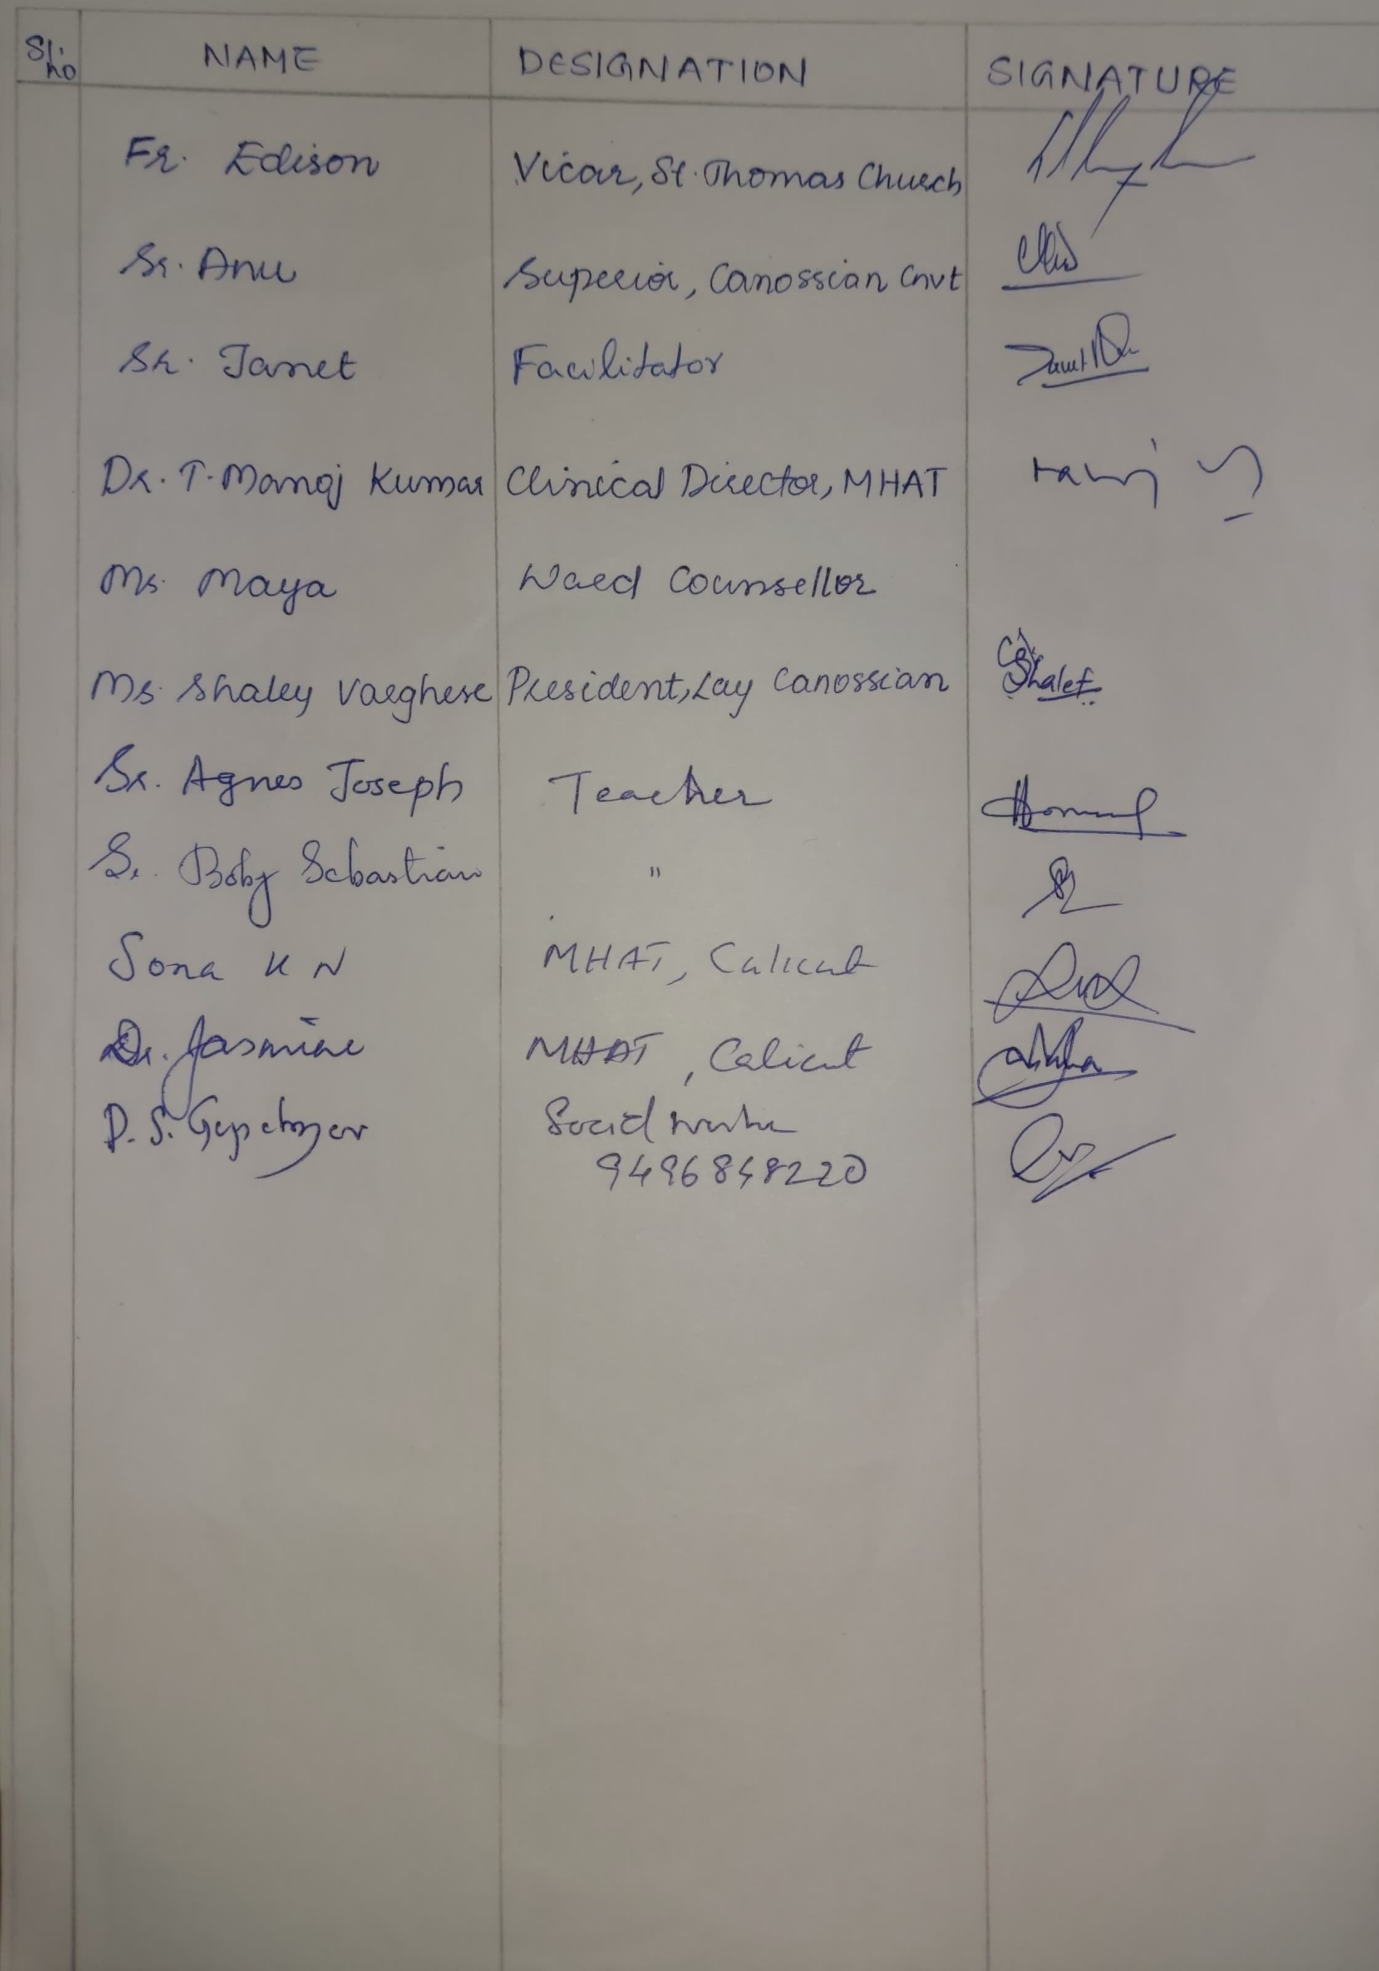 Sl. no NAME DESIGNATION SIGNATURE
Fr. Edison Vicar, St. Thomas Church
Sr. Anu Superior, Canossian Cnvt
Sr. Janet Facilitator
Dr. T. Manoj Kumar Clinical Director, MHAT
Ms. Maya Ward Counsellor
Ms. Shaley Varghese President, Lay Canossian
Sr. Agnes Joseph Teacher
Sr. Boby Sebastian "
Sona K N MHAT, Calicut
Dr. Jasmine MHAT, Calicut
P. S. Social worker
9496848220